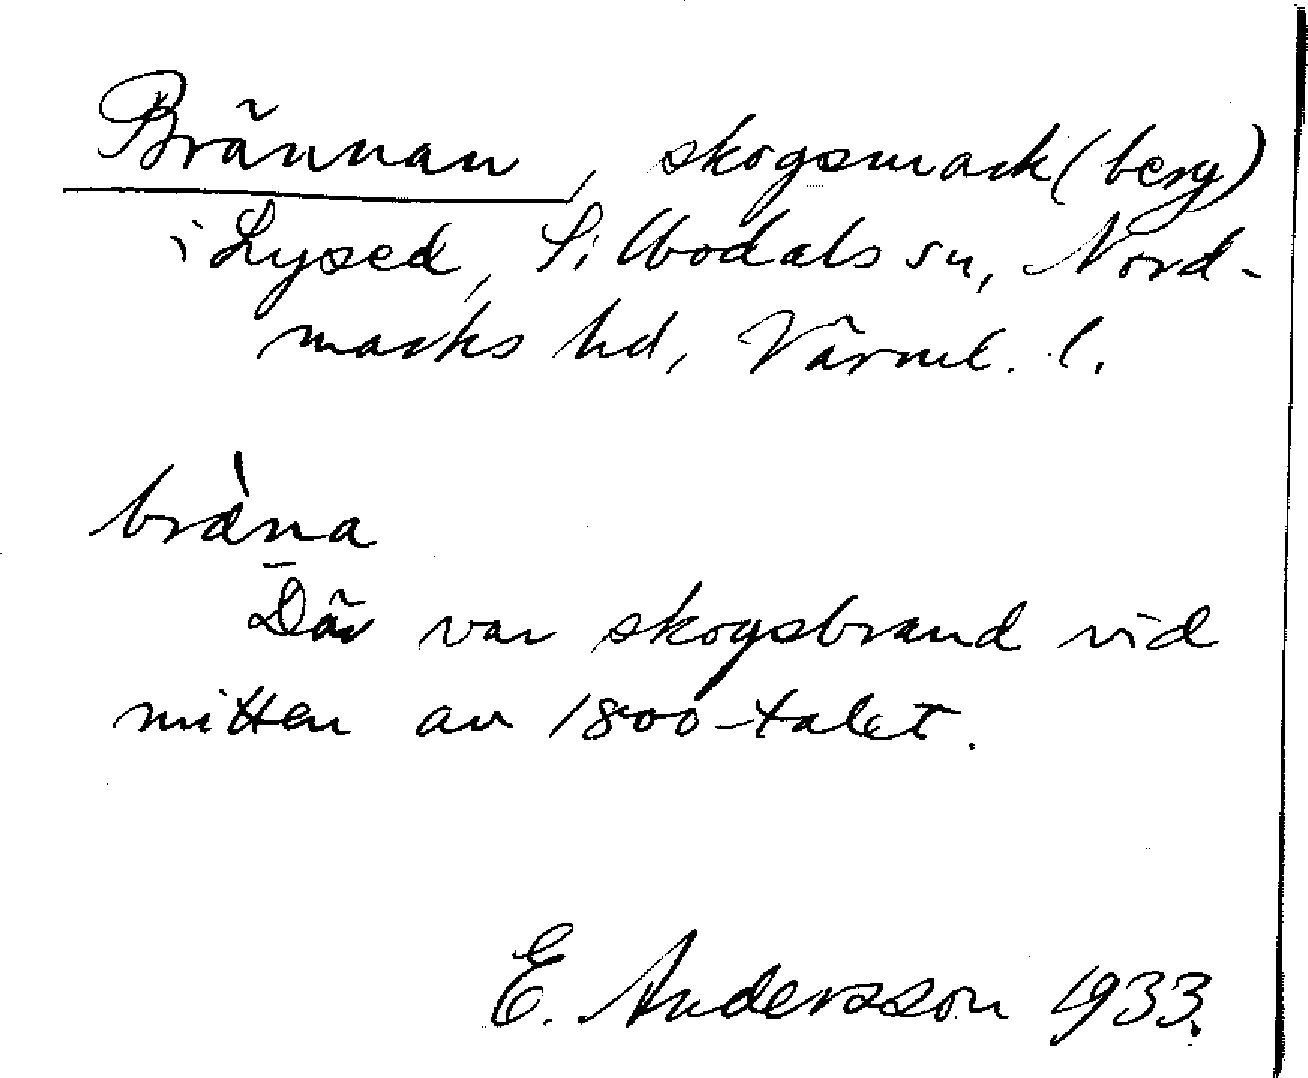 Brännan, skogsmark (berg)
i Lysed, Silbodals sn, Nord-
marks hd, Värml. l.
bràna
Där var skogsbrand vid
mitten av 1800-talet.
E. Andersson 1933.